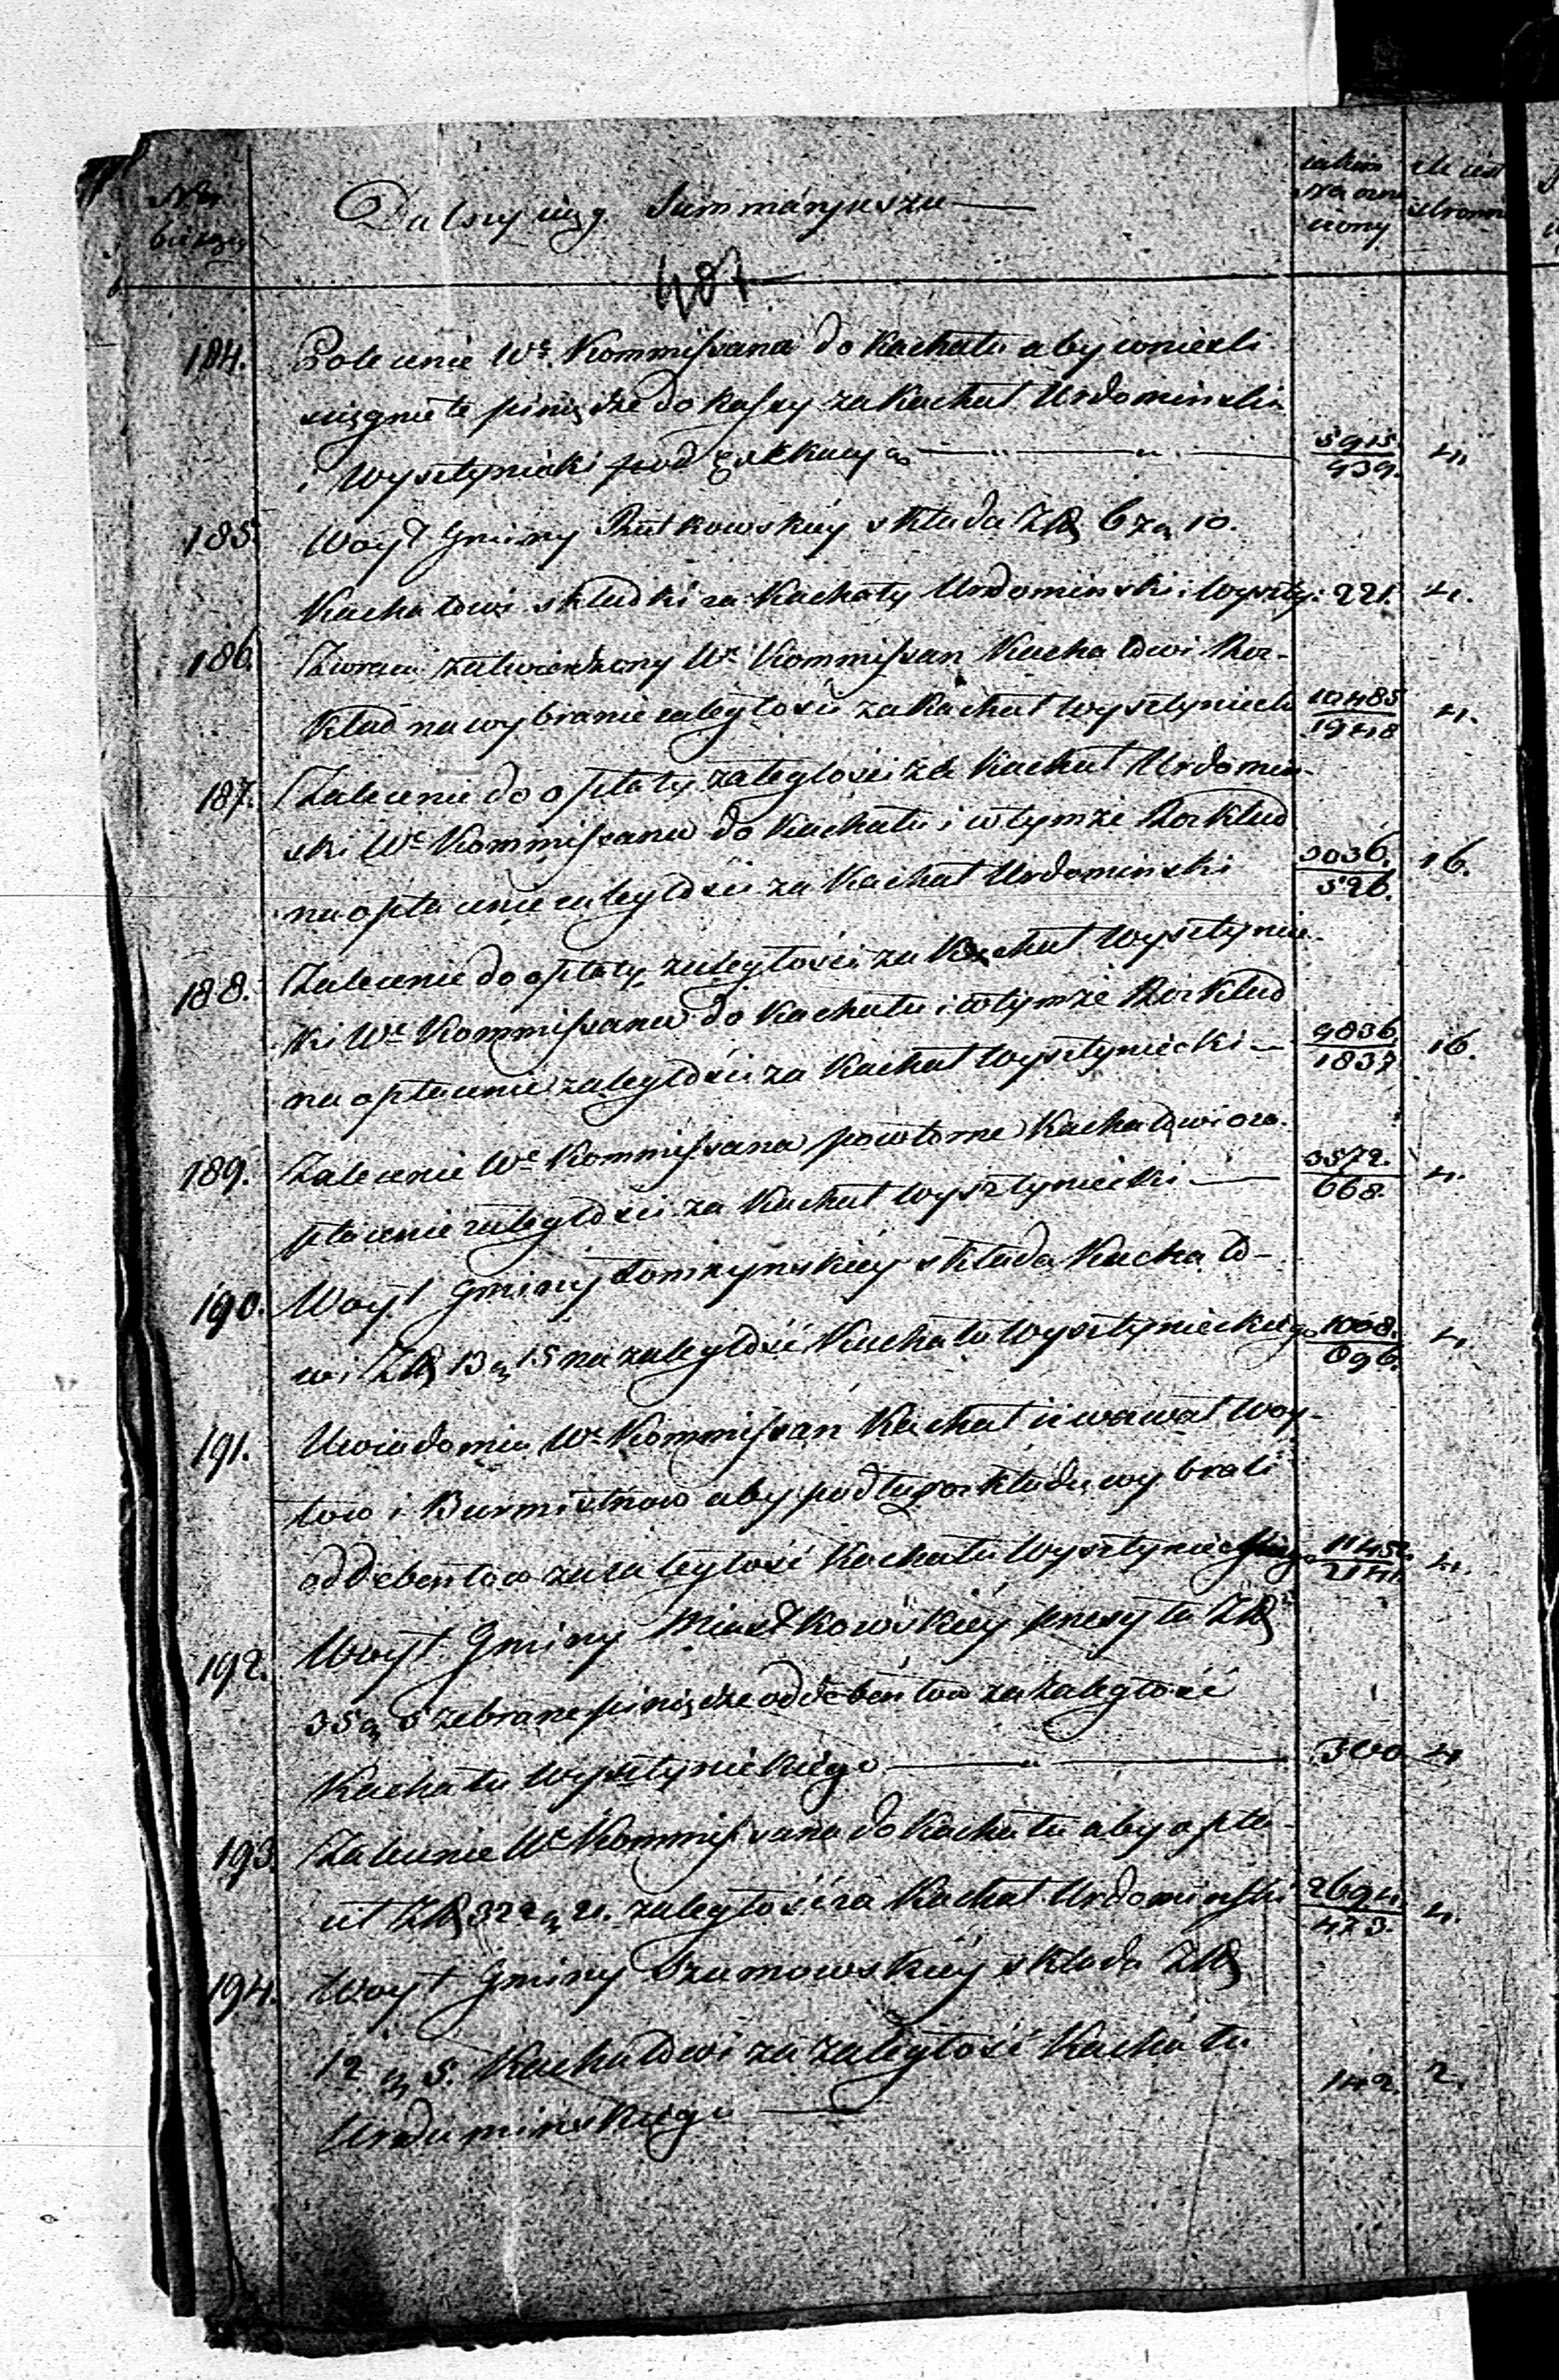 Nro bieżący
Dalszy ciąg Summaryuszu
iakim No ozna czony
ile jest stronnic
407
184. Polecenie Wo Kommissarza do Kachału aby wnieśli
ściągnięte pieniądze do kassy za Kachał Urdominski
i Wysztyniecki pod exekucyą 5915/939. 4.
185. Wóyt Gminy Rutkowskiéy składa ZŁP 6 gr 10.
Kachałowi składki za Kachały Urdominski i Wyszty: 221. 4.
186. Zwraca zatwierdzony Wy Kommissarz Kachałowi Roz-
kład na wybranie zaległości za Kachał Wysztyniecki 10485/1948 4.
187. Zalecenie do opłaty zaległości za Kachał Urdomin-
ski Wo Kommissarza do Kachału i w tymże Rozkład
na opłacenie zaległości za Kachał Urdominski 3036./526. 16.
188. Zalecenie do opłaty zaległości za Kachał Wysztynie-
cki Wo Kommissarza do Kachału i w tymże Rozkład
na opłacenie zaległości za Kachał Wysztyniecki 9836/1837 16.
189. Zalecenie Wo Kommissarza powtorne Kachałowi o za-
płacenie zaległości za Kachał Wysztyniecki 3572./668. 4.
190. Wóyt Gminy Łomzynskiéy składa Kachało-
wi ZŁP 13 gr 15 na zaległość Kachału Wysztynieckiego 1008./696. 4.
191. Uwiadomia Wy Kommissarz Kachał iż wezwał Wóy-
tow i Burmistrzow aby podług rozkładu wybrali
od debentow za zaległość Kachału Wysztynieckiego 11452/2141 4.
192. Wóyt Gminy Miastkowskiéy przesyła ZŁP
35 gr 5 zebrane pieniądze od debentow za zaległość
Kachału Wysztynieckiego 300 4.
193. Zalecenie Wo Kommissarza do Kachału aby opła-
cił ZŁP 322 gr 21. zaległości za Kachał Urdominski 2694./473. 4.
194. Wóyt Gminy Szumowskiéy składa ZŁP
12 gr 5. Kachałowi za zaległość Kachału
Urduminskiego 142. 2.